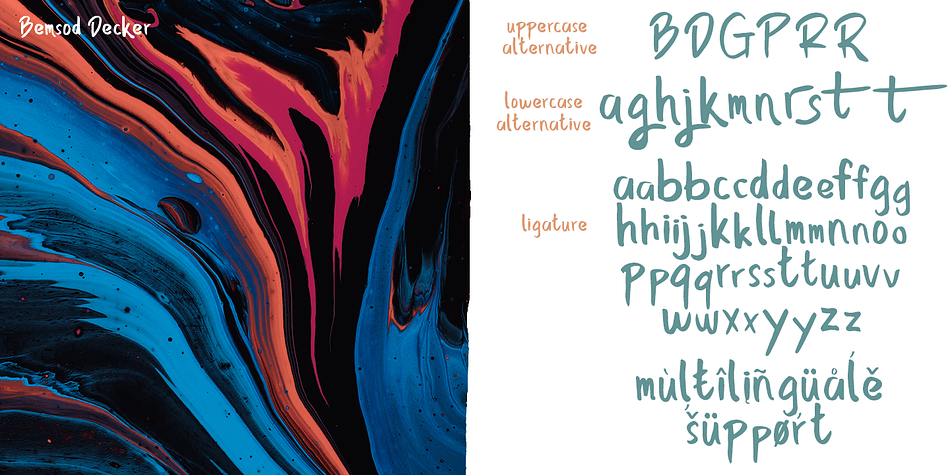 Bemsod Decker
uppercase
alternative
BDGPRR
lowercase
alternative
aghjkmnrstt
ligature
aabbccddeeffgg
hhiijjkkllmmnnoo
ppqqrrssttuuvv
wwxxyyzz
mùltîliñgüålě
šüppørt